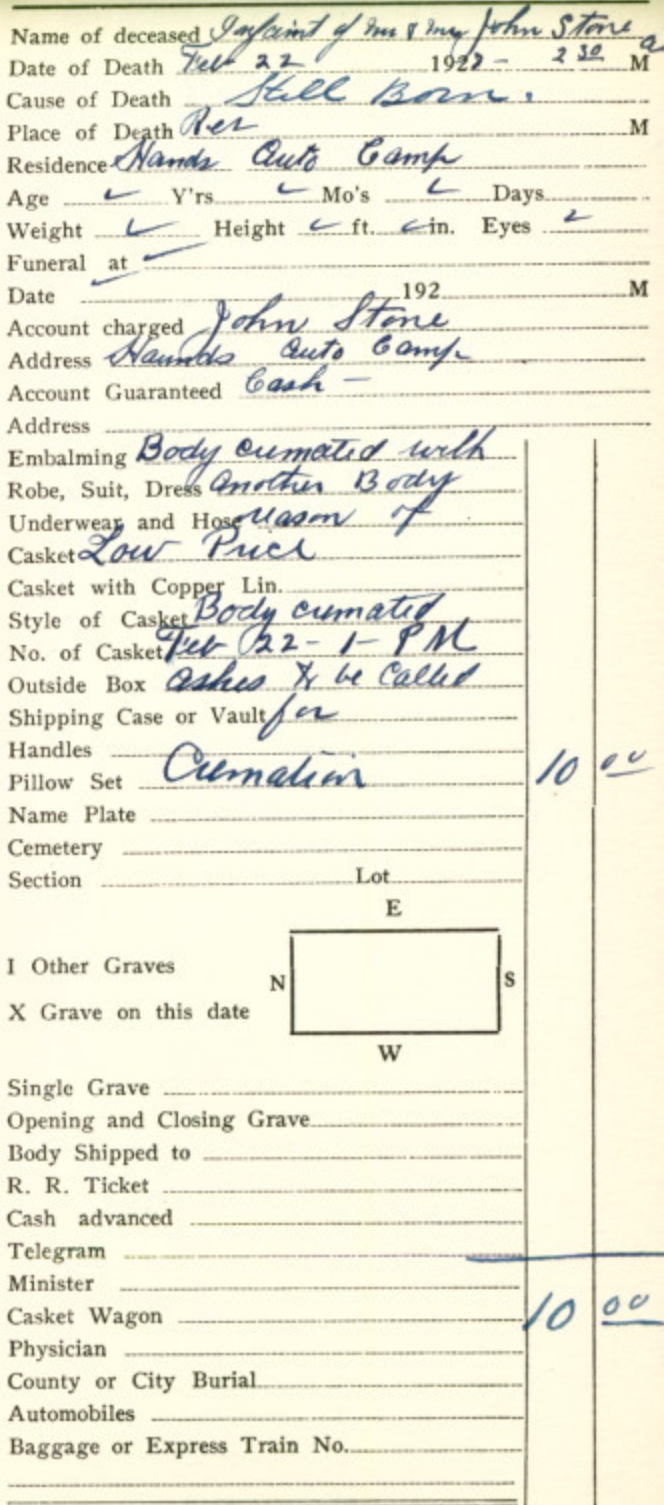 Name of deceased Infaint of Mr & Mrs John Stone
Date of Death Feb 22 1928 - 2 30 a M
Cause of Death Still Born.
Place of Death Res M
Residence Hands Auto Camp
Age Y'rs Mo's Days
Weight Height ft. in. Eyes
Funeral at
Date 192 M
Account charged John Stone
Address Haunds Auto Camp
Account Guaranteed Cash -
Address
Embalming Body cremated with
Robe, Suit, Dress another Body
Underwear and Hose reason of
Casket Low Price
Casket with Copper Lin.
Style of Casket Body cremated
No. of Casket Feb 22 - 1 - PM
Outside Box Ashes to be Called
Shipping Case or Vault for
Handles
Pillow Set Cremation 10 00
Name Plate
Cemetery
Section Lot
E
I Other Graves
N S
X Grave on this date
W
Single Grave
Opening and Closing Grave
Body Shipped to
R. R. Ticket
Cash advanced
Telegram
Minister
Casket Wagon 10 00
Physician
County or City Burial
Automobiles
Baggage or Express Train No.